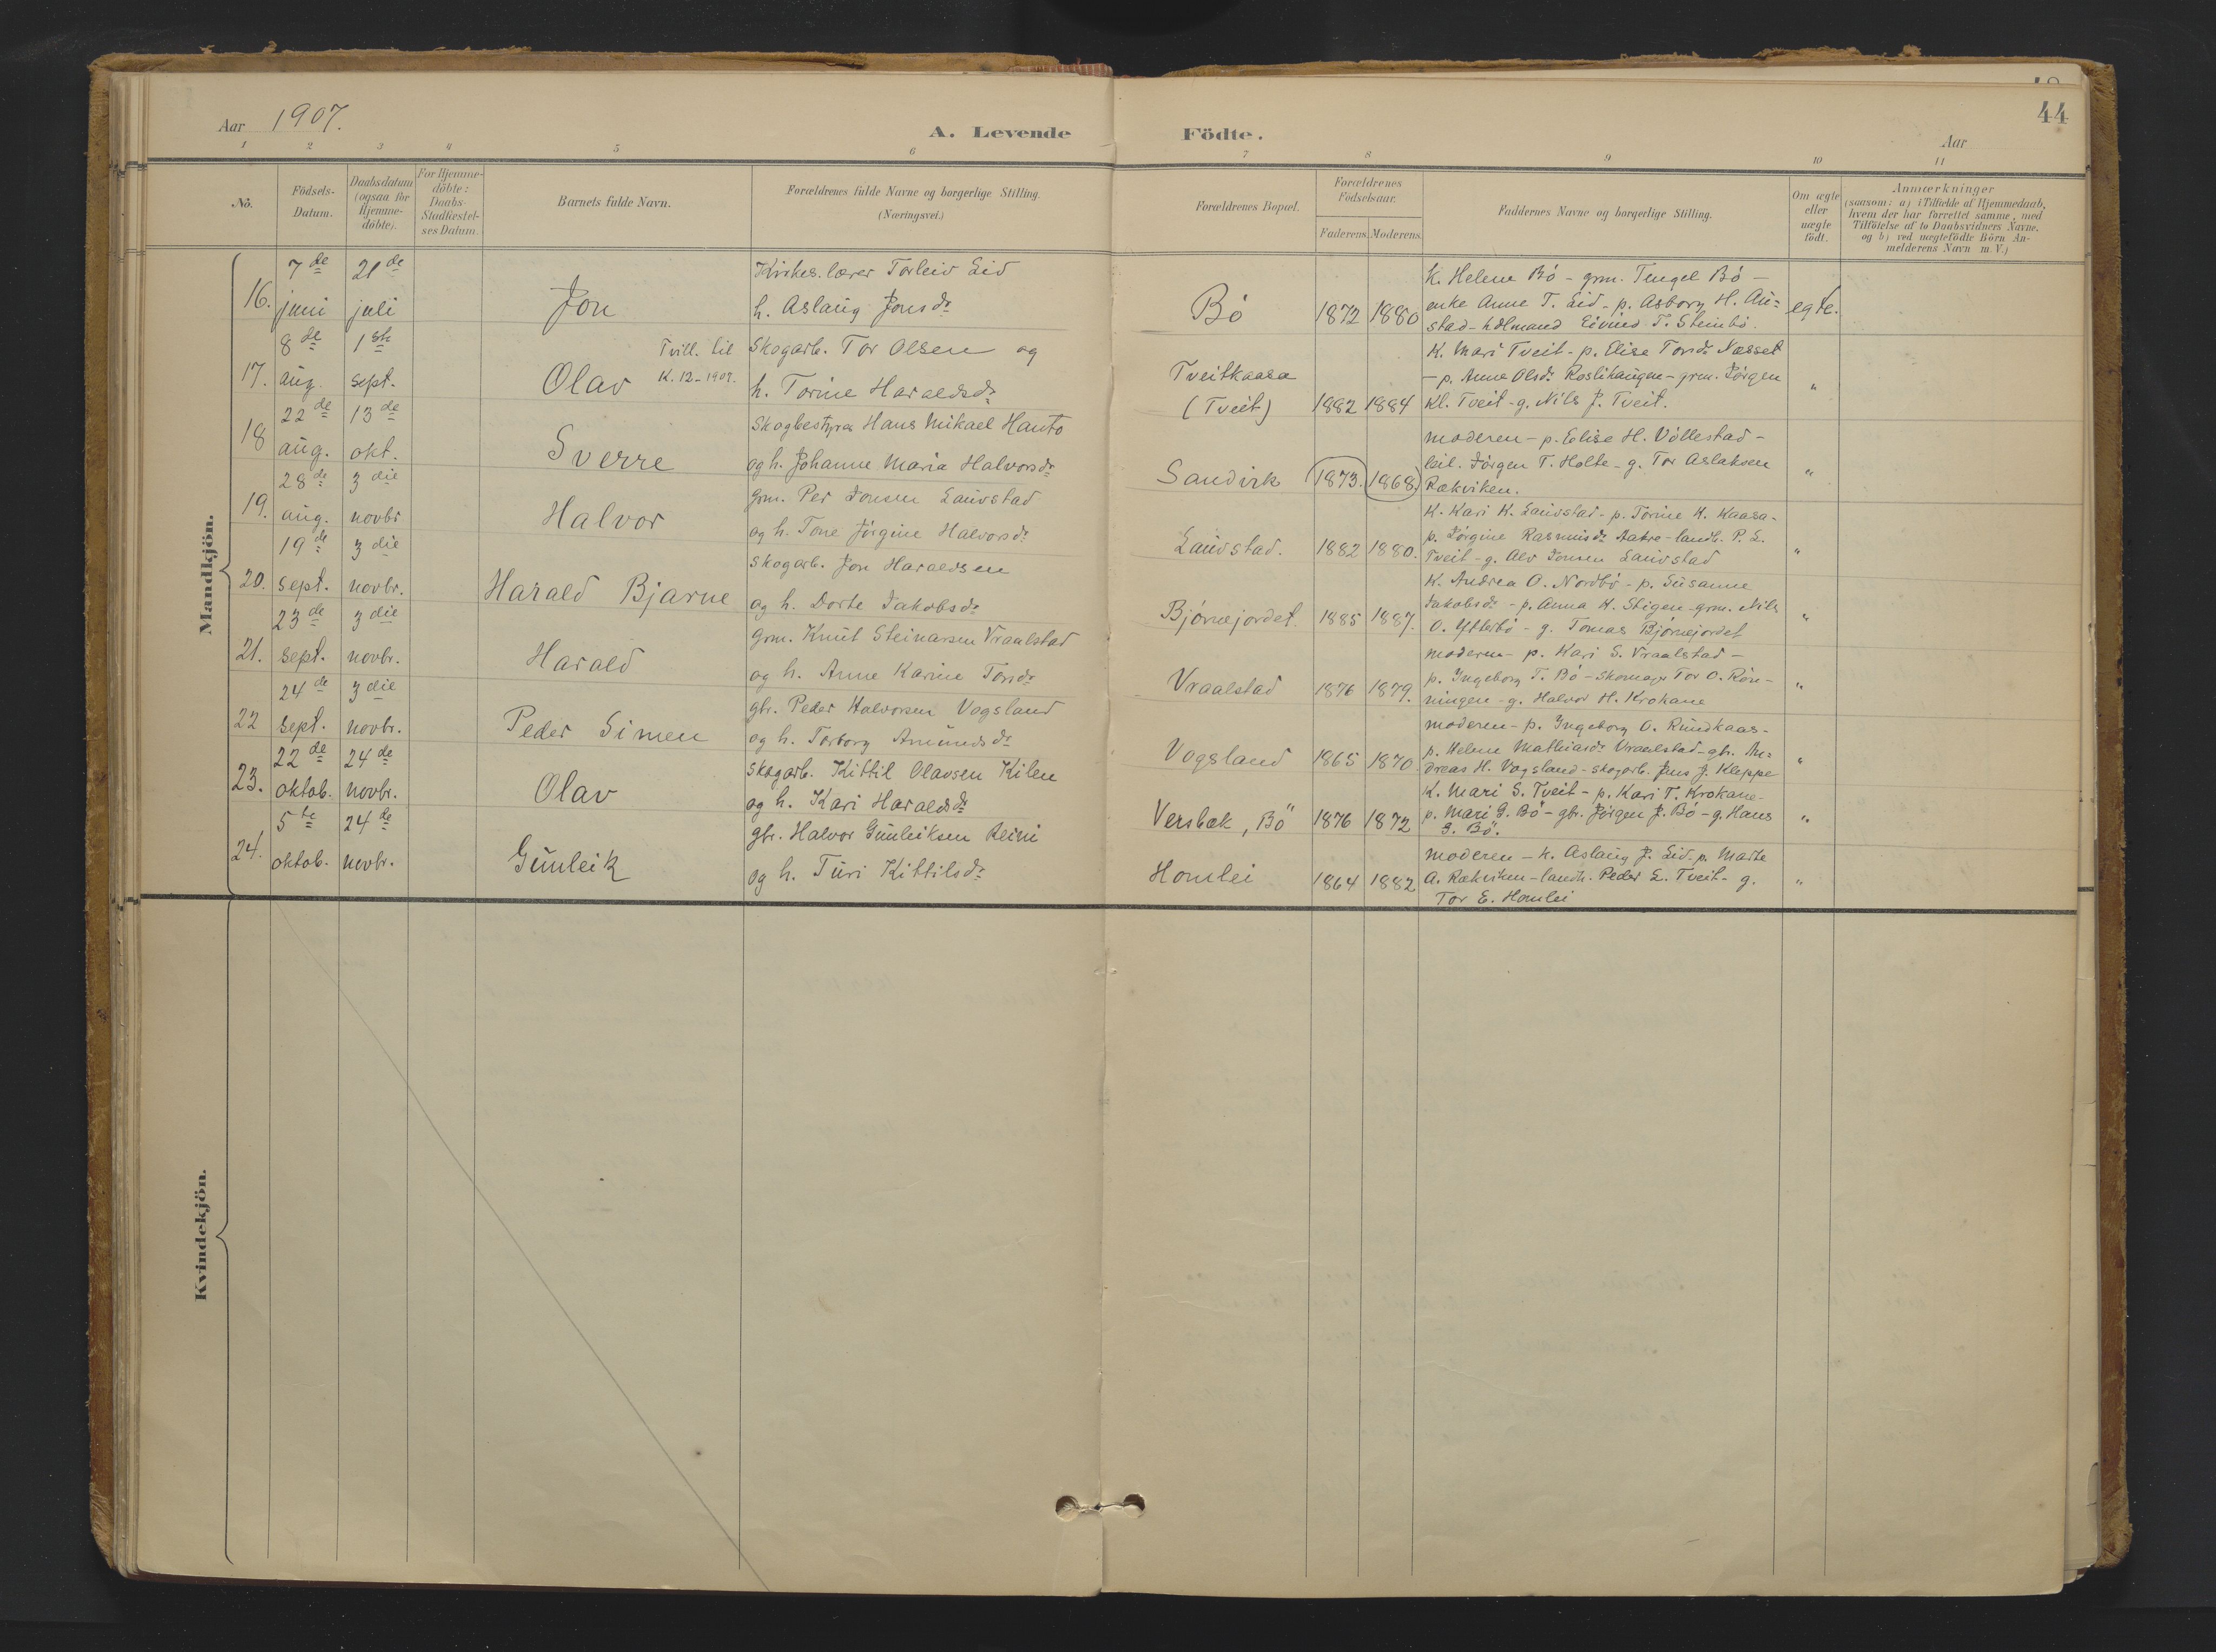 44
Aar 1907.
A. Levende Födte.
Aar
1 2 3 4 5 6 7 8 9 10 11
No.
Födsels-
Datum.
Daabsdatum
(ogsaa for
Hjemme-
döbte).
For Hjemme-
döbte:
Daabs-
Stadfæstel-
ses Datum.
Barnets fulde Navn.
Forældrenes fulde Navne og borgerlige Stilling.
(Næringsvei.)
Forældrenes Bopæl.
Forældrenes
Födselsaar.
Faderens. Moderens.
Faddernes Navne og borgerlige Stilling.
Om ægte
eller
uægte
födt.
Anmærkninger
(saasom: a) i Tilfælde af Hjemmedaab,
hvem der har forrettet samme, med
Tilföielse af to Daabsvidners Navne.
og b) ved uægtefödte Börn An-
melderens Navn m. V.)
Mandkjön.
16.
7de juni
21de juli
Jon
Kirkes. lærer Torleiv Eid
h. Aslaug Jonsdr
Bö
1872 1880
K. Helene Bö - grm. Tengel Bö -
enke Anne T. Eid - p. Asborg H. Au=
stad - Eivind T. Steinbö.
egte.
17.
8de aug.
1ste sept.
Olav
Tvill. til
K. 12-1907.
Skogarb. Tor Olsen og
h. Torine Haraldsdr
Tveitkaasa
(Tveit)
1882 1884
K. Mari Tveit - p. Elise Torsdr Næsset
- p. Anne Olsdr Roslihaugen - grm. Jörgen
Kl. Tveit - g. Nils J. Tveit.
"
18
22de aug.
13de okt.
Sverre
Skogbestyrer Hans Mikael Hauto
og h. Johanne Maria Halvorsdr
Sandvik
1873. 1868.
moderen - p. Elise H. Völlestad -
leil. Jörgen T. Holte - g. Tor Aslaksen
Rækviken.
"
19.
28de aug.
3die novbr
Halvor
grm. Per Jonsen Lauvstad
og h. Tone Jörgine Halvorsdr
Lauvstad.
1882 1880.
K. Kari K. Lauvstad - p. Torine K. Kaasa -
p. Jörgine Rasmusdr Aakre - landh. P. L.
Tveit - g. Alv Jonsen Lauvstad
"
20.
19de sept.
3die novbr.
Harald Bjarne
Skogarb. Jon Haraldsen
og h. Dorte Jakobsdr
Bjørnejordet.
1885 1887.
K. Andrea O. Nordbö - p. Susanne
Jakobsdr - p. Anna K. Stigen - grm. Nils
O. Ytterbö - g. Tomas Björnejordet
"
21.
23de sept.
3die novbr.
Harald
Grm. Knut Steinarsen Vraalstad
og h. Anne Karine Torsdr
Vraalstad
1876 1879.
moderen - p. Kari S. Vraalstad -
p. Ingeborg T. Bö - skomager Tor O. Rön-
ningen - g. Halvor H. Krokane
"
22
24de sept.
3die novbr.
Peder Simen
gbr. Peder Halvorsen Vogsland
og h. Torborg Amundsdr
Vogsland
1865 1870.
moderen - p. Ingeborg O. Rundkaas -
p. Helene Mathiasdr Vraalstad - gbr. An=
dreas H. Vogsland - skogarb. Jens J. Kleppe
"
23.
22de oktob.
24de novbr.
Olav
Skogarb. Kittil Olavsen Kilen
og h. Kari Haraldsdr
Versbæk, Bö
1876 1872
K. Mari S. Tveit - p. Kari T. Krokane -
p. Mari G. Bö - gbr. Jörgen J. Bö - g. Hans
G. Bö.
"
24.
5te oktob.
24de novbr.
Gunleik
gbr. Halvor Gunleiksen Reini
og h. Turi Kittilsdr
Homlei
1864 1882
moderen - K. Aslaug J. Eid - p. Marte
A. Rækviken - landh. Peder L. Tveit - g.
Tor E. Homlei
"
Kvindekjön.